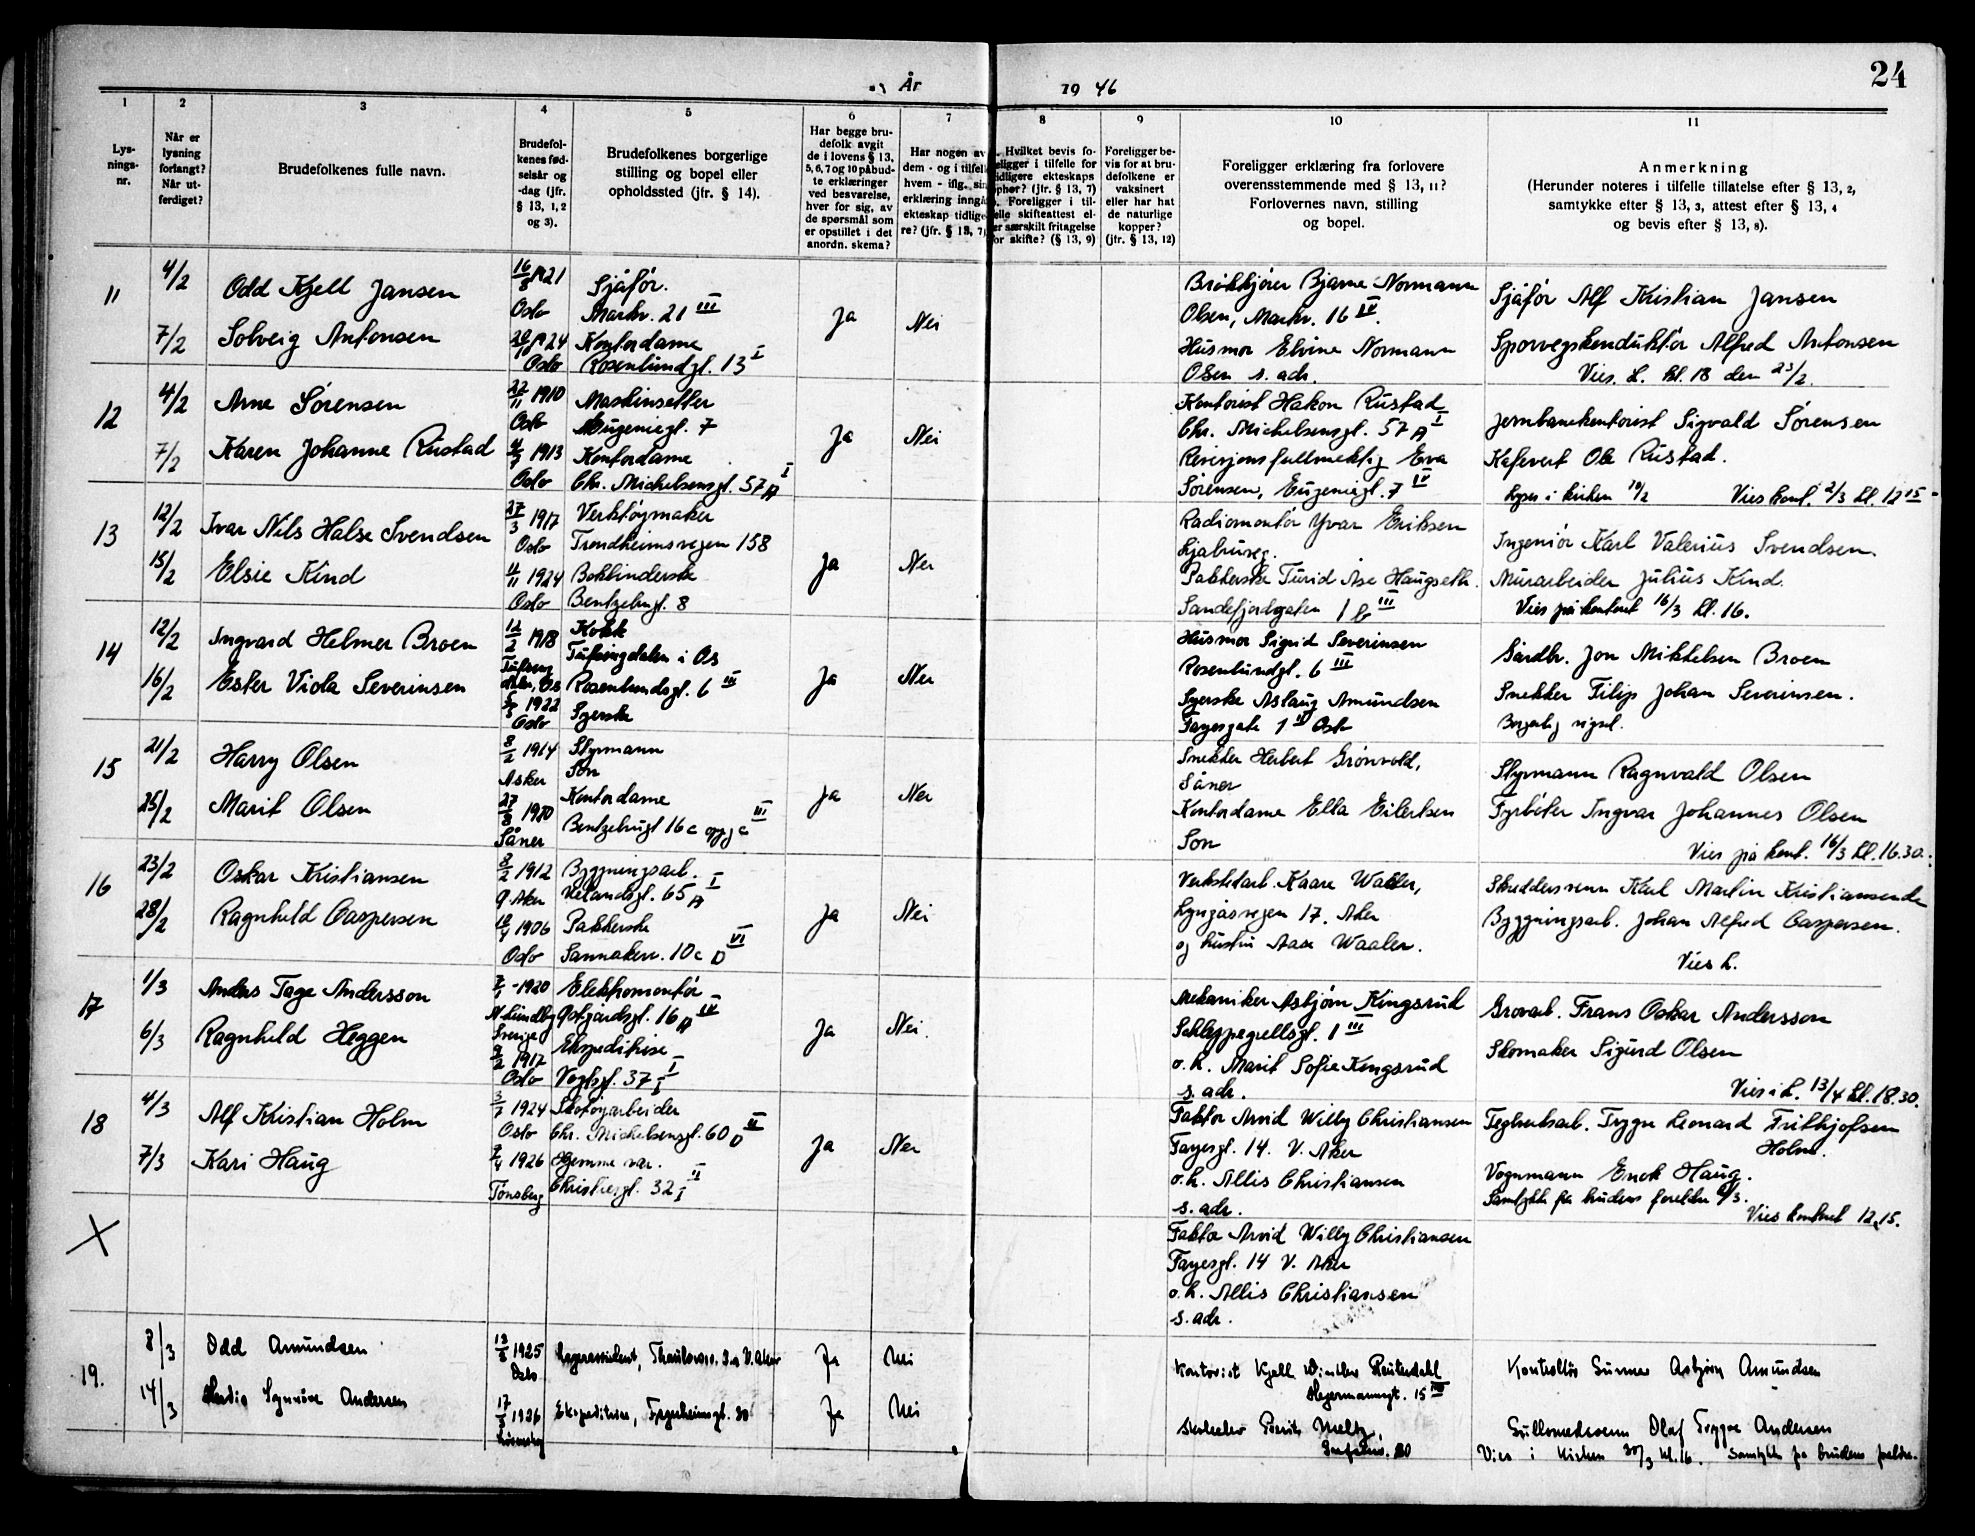 År 1946
24
1
2
3
4
5
6
7
8
9
10
11
Lys-
nings-
nr.
Når er
lysning
forlangt?
Når ut-
ferdiget?
Brudefolkenes fulle navn.
Brudefol-
kenes fød-
selsår og
-dag (jfr.
§ 13, 1, 2
og 3).
Brudefolkenes borgerlige
stilling og bopel eller
opholdssted (jfr. § 14).
Har begge bru-
defolk avgit
de i lovens § 13,
5, 6, 7 og 10 påbud-
te erklæringer
ved besvarelse,
hver for sig, av
de spørsmål som
er opstillet i det
anordn. skema?
Har nogen av
dem - og i tilfelle
hvem - iflg. sin
erklæring inngå
ekteskap tidlige-
re? (jfr. § 13, 7)
Hvilket bevis fo-
religger i tilfelle for
tidligere ekteskaps
ophør? (jfr. § 13, 7)
Foreligger i til-
felle skifteattest el-
er særskilt fritagelse
for skifte? (§ 13, 9)
Foreligger be-
vis for at bru-
defolkene er
vaksinert
eller har hat
de naturlige
kopper?
(jfr. § 13, 12)
Foreligger erklæring fra forlovere
overensstemmende med § 13, 11?
Forlovernes navn, stilling
og bopel.
Anmerkning
(Herunder noteres i tilfelle tillatelse efter § 13, 2,
samtykke efter § 13, 3, attest efter § 13, 4
og bevis efter § 13, 8).
11
4/2
7/2
Odd Kjell Jansen
Solveig Antonsen
16/8 1921
Oslo
1924
Oslo
Sjåfør.
Markv. 21 III
Kontordame
Rosenlundgt. 13 I
Ja
Nei
Bjarne Normann
Olsen, Markv. 16 IV.
Husmor Elvine Normann
Olsen s. adr.
Sjåfør Alf Kristian Jansen
Sporvegskonduktør Alfred Antonsen
Vies. k. kl. 18 den 23/2.
12
4/2
7/2
Arne Sørensen
Karen Johanne Rustad
22/11 1910
Oslo
1913
Oslo
Maskinsetter
Eugeniegt. 7
Kontordame
Chr. Michelsensgt. 57 A I
Ja
Nei
Kontorist Hakon Rustad
Chr. Michelsensgt. 57 A I
Revisjonsfullmektig Eva
Sørensen, Eugeniegt. 7 IV
Jernbanekontorist Sigvald Sørensen
Kafevert Ole Rustad.
Lyses i kirken 10/2 Vies kont. 2/3 kl. 12 15
13
12/2
15/2
Ivar Nils Halse Svendsen
Elsie Kind
27/3 1917
Oslo
11/11 1924
Oslo
Verktøymaker
Trondheimsvegen 158
Bokbinderske
Bentzebrugt. 8
Ja
Nei
Radiomontør Yvar Eriksen
Ljabruveg.
Pakkerske Turid Åse Haugseth.
Sandefjordgaten 1 b III
Ingeniør Karl Valerius Svendsen.
Murarbeider Julius Kind.
Vies på kontoret 16/3 kl. 16.
14
12/2
16/2
Ingvard Helmer Broen
Ester Viola Severinsen
12/2 1918
Tufsing
dalen, Os
1922
Oslo
Kokk
Tufsingdalen i Os
Rosenlundsgt. 6 III
Syerske
Ja
Nei
Husmor Sigrid Severinsen
Rosenlundgt. 6 III
Syerske Aslaug Amundsen
Fayesgate 1 II Oslo
Gårdbr. Jon Mikkelsen Broen
Snekker Filip Johan Severinsen.
Borgerlig vigsel.
15
21/2
25/2
Harry Olsen
Marit Olsen
8/2 1914
Asker
27/8 1920
Såner
Styrmann
Son
Kontordame
Bentzebrugt 16 c oppg c III
Ja
Nei
Snekker Herbert Grønvold,
Såner
Kontordame Ella Eilertsen
Son
Styrmann Ragnvald Olsen
Fyrbøter Ingvar Johannes Olsen
Vies på kont. 16/3 kl. 16.30.
16
23/2
28/2
Oskar Kristiansen
Ragnhild Caspersen
8/2 1912
Ø. Aker
1906
Oslo
Bygningsarb.
Hekandsgt. 65 A I
Pakkerske
Sannakerv. 10 c D VI
Ja
Nei
Verkstedarb. Kaare Waaler,
Lyngåsvegen 17. Aker
og hustru Aase Waaler.
Skreddersvenn Karl Martin Kristiansen
Bygningsarb. Johan Alfred Caspersen.
Vies k.
17
1/3
6/3
Anders Tage Andersson
Ragnhild Heggen
7/1 1920
N Lundby
Sverige
2/2 1917
Oslo
Elektromontør
Østgårdsgt. 16 A IV
Ekspeditrise
Vogtsgt. 37 I I
Ja
Nei.
Mekaniker Asbjørn Kingsrud
Schleppegrellsgt. 1 III
o. h. Marit Sofie Kingsrud
s. adr.
Grovarb. Frans Oskar Andersson
Skomaker Sigurd Olsen
Vies i k. 13/4 kl. 18.30.
18
4/3
7/3
Alf Kristian Holm
Kari Haug
3/7 1924
Oslo
7/4 1926
Tønsberg
Skotøyarbeider
Chr. Michelsensgt. 60 D II
Hjemme vær.
Christiesgt. 32 I II
Ja
Nei
Faktor Arvid Willy Christiansen
Fayesgt. 14. V. Aker
o. h. Allis Christiansen
s. adr.
Teglverksarb. Trygve Leonard Frithjofsen
Holm.
Vognmann Enok Haug.
Samtykke fra brudens foreldre 6/3.
Vies kontoret 12.15.
X
Faktor Arvid Willy Christiansen
Fayesgt. 14 V. Aker
o. h. Allis Christiansen
s. adr.
19.
8/3
14/3
Odd Amundsen
Synnøve Andersen
1925
Oslo
17/3 1926
Lagerassistent, V. Aker
Ekspeditrise, 30
Ja
Ja
Nei
Nei
Kontorist Kjell Winther Reuterdahl
Hegermannsgt. 15 III
Kontrollør Gunnar Asbjørn Amundsen
Gullsmedsvenn Olaf Trygve Andersen
Vies i kirken 30/3 kl. 16. Samtykke fra brudens foreldre.